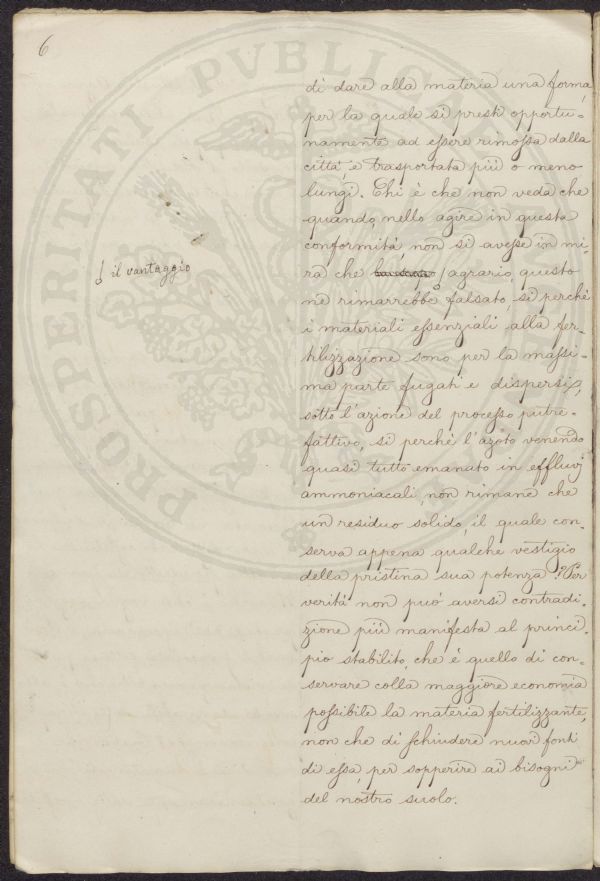 6
di dare alla materia una forma,
per la quale si presti opportu-
namente ad essere rimossa dalla
città, e trasportata più o meno
lungi. Chi è che non veda che
quando, nello agire in questa
conformità, non si avesse in mi-
ra che agrario, questo
il vantaggio
ne rimarrebbe falsato, sì perchè
i materiali essenziali alla fer-
tilizzazione sono per la massi-
ma parte fugati e dispersi,
sotto l'azione del processo putre-
fattivo, sì perchè l'azoto venendo
quasi tutto emanato in effluvj
ammoniacali, non rimane che
un residuo solido, il quale con-
serva appena qualche vestigio
della pristina sua potenza? Per
verità non può aversi contradi-
zione più manifesta al princi-
pio stabilito, che è quello di con-
servare colla maggiore economia
possibile la materia fertilizzante,
non che di schiudere nuovi fonti
di essa, per sopperire ai bisogni
del nostro suolo.
PROSPERITATI PVBLICAE